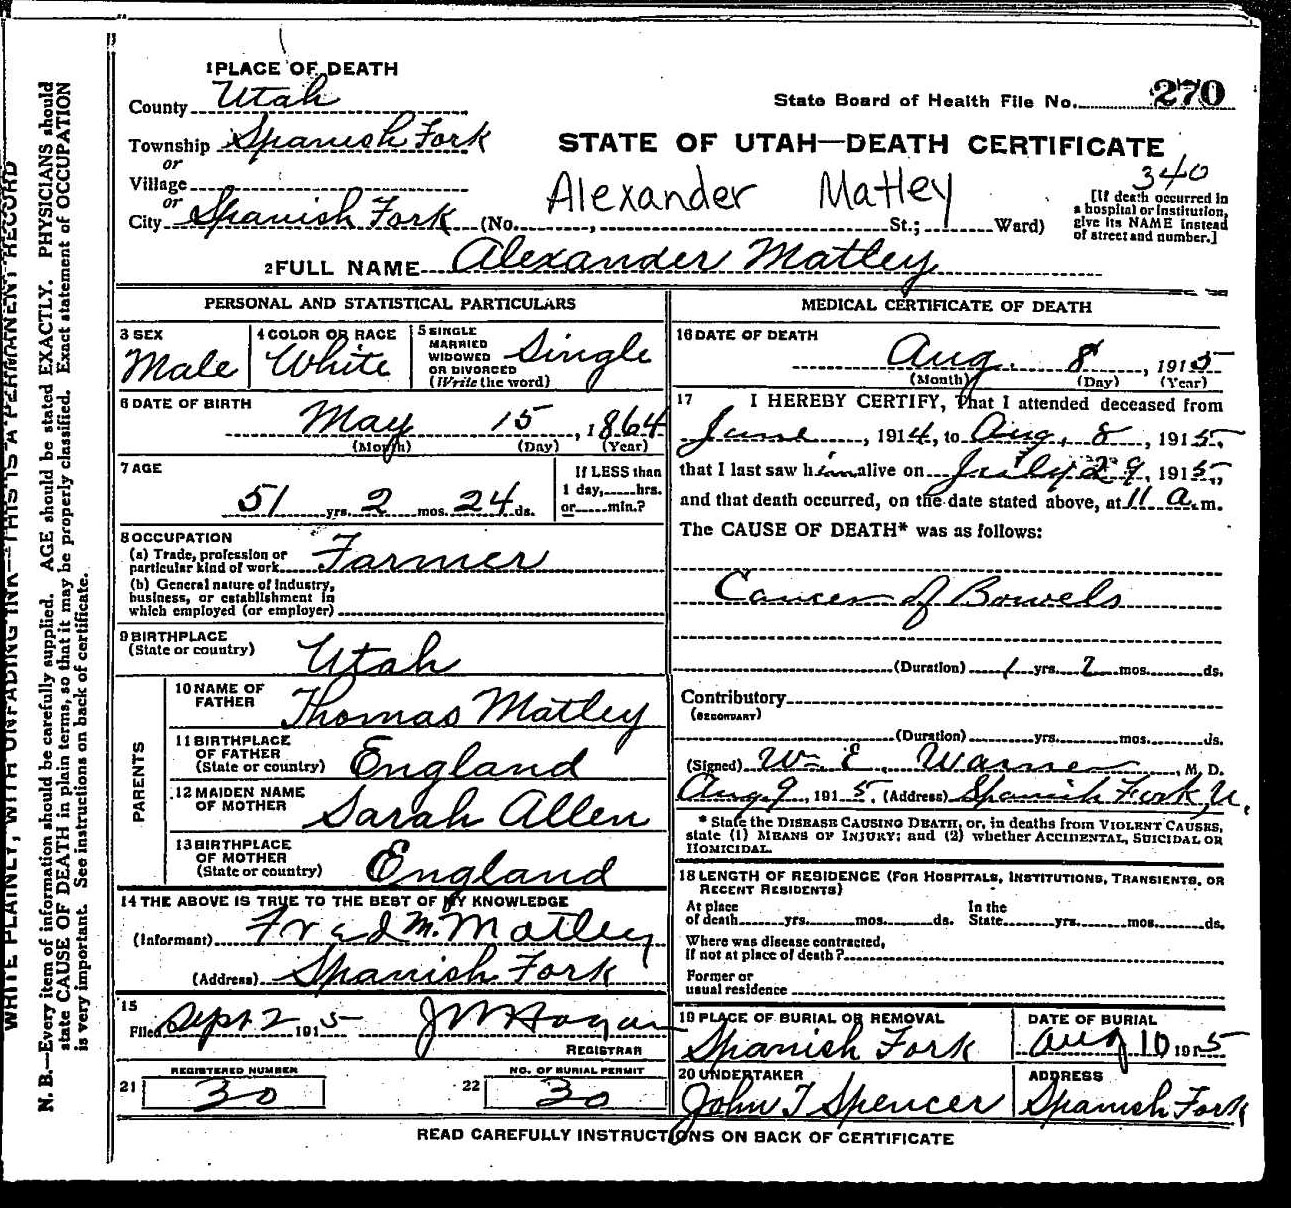 1 PLACE OF DEATH
County Utah
State Board of Health File No. 270
Township Spanish Fork
or
STATE OF UTAH—DEATH CERTIFICATE
Village
or
Alexander Matley
340
City Spanish Fork (No. , St.; Ward)
[If death occurred in
a hospital or institution,
give its NAME instead
of street and number.]
2 FULL NAME Alexander Matley
PERSONAL AND STATISTICAL PARTICULARS
3 SEX
Male
4 COLOR OR RACE
White
5 SINGLE
MARRIED
WIDOWED
OR DIVORCED
(Write the word)
Single
6 DATE OF BIRTH
May 15, 1864
(Month) (Day) (Year)
7 AGE
51 yrs. 2 mos. 24 ds.
If LESS than
1 day, hrs.
or min.?
8 OCCUPATION
(a) Trade, profession or
particular kind of work Farmer
(b) General nature of Industry,
business, or establishment in
which employed (or employer)
9 BIRTHPLACE
(State or country) Utah
PARENTS
10 NAME OF
FATHER Thomas Matley
11 BIRTHPLACE
OF FATHER
(State or country) England
12 MAIDEN NAME
OF MOTHER Sarah Allen
13 BIRTHPLACE
OF MOTHER
(State or country) England
14 THE ABOVE IS TRUE TO THE BEST OF MY KNOWLEDGE
(Informant) Fred M. Matley
(Address) Spanish Fork
15
Filed Sept 2 1915 J W Hagan
REGISTRAR
REGISTERED NUMBER
21 30
NO. OF BURIAL PERMIT
22 30
MEDICAL CERTIFICATE OF DEATH
16 DATE OF DEATH
Aug. 8, 1915
(Month) (Day) (Year)
17 I HEREBY CERTIFY, That I attended deceased from
June, 1914, to Aug. 8, 1915,
that I last saw him alive on July 29, 1915,
and that death occurred, on the date stated above, at 11 a. m.
The CAUSE OF DEATH* was as follows:
Cancer of Bowels
(Duration) 1 yrs. 2 mos. ds.
Contributory
(SECONDARY)
(Duration) yrs. mos. ds.
(Signed) Wm. E. Warner, M. D.
Aug 9, 1915. (Address) Spanish Fork U.
* State the DISEASE CAUSING DEATH, or, in deaths from VIOLENT CAUSES,
state (1) MEANS OF INJURY; and (2) whether ACCIDENTAL, SUICIDAL OR
HOMICIDAL.
18 LENGTH OF RESIDENCE (FOR HOSPITALS, INSTITUTIONS, TRANSIENTS, OR
RECENT RESIDENTS)
At place
of death yrs. mos. ds.
In the
State yrs. mos. ds.
Where was disease contracted,
If not at place of death?
Former or
usual residence
19 PLACE OF BURIAL OR REMOVAL
Spanish Fork
DATE OF BURIAL
Aug 10 1915
20 UNDERTAKER
John T Spencer
ADDRESS
Spanish Fork
READ CAREFULLY INSTRUCTIONS ON BACK OF CERTIFICATE
WRITE PLAINLY, WITH UNFADING INK—THIS IS A PERMANENT RECORD
N. B.—Every item of information should be carefully supplied. AGE should be stated EXACTLY. PHYSICIANS should
state CAUSE OF DEATH in plain terms, so that it may be properly classified. Exact statement of OCCUPATION
is very important. See instructions on back of certificate.